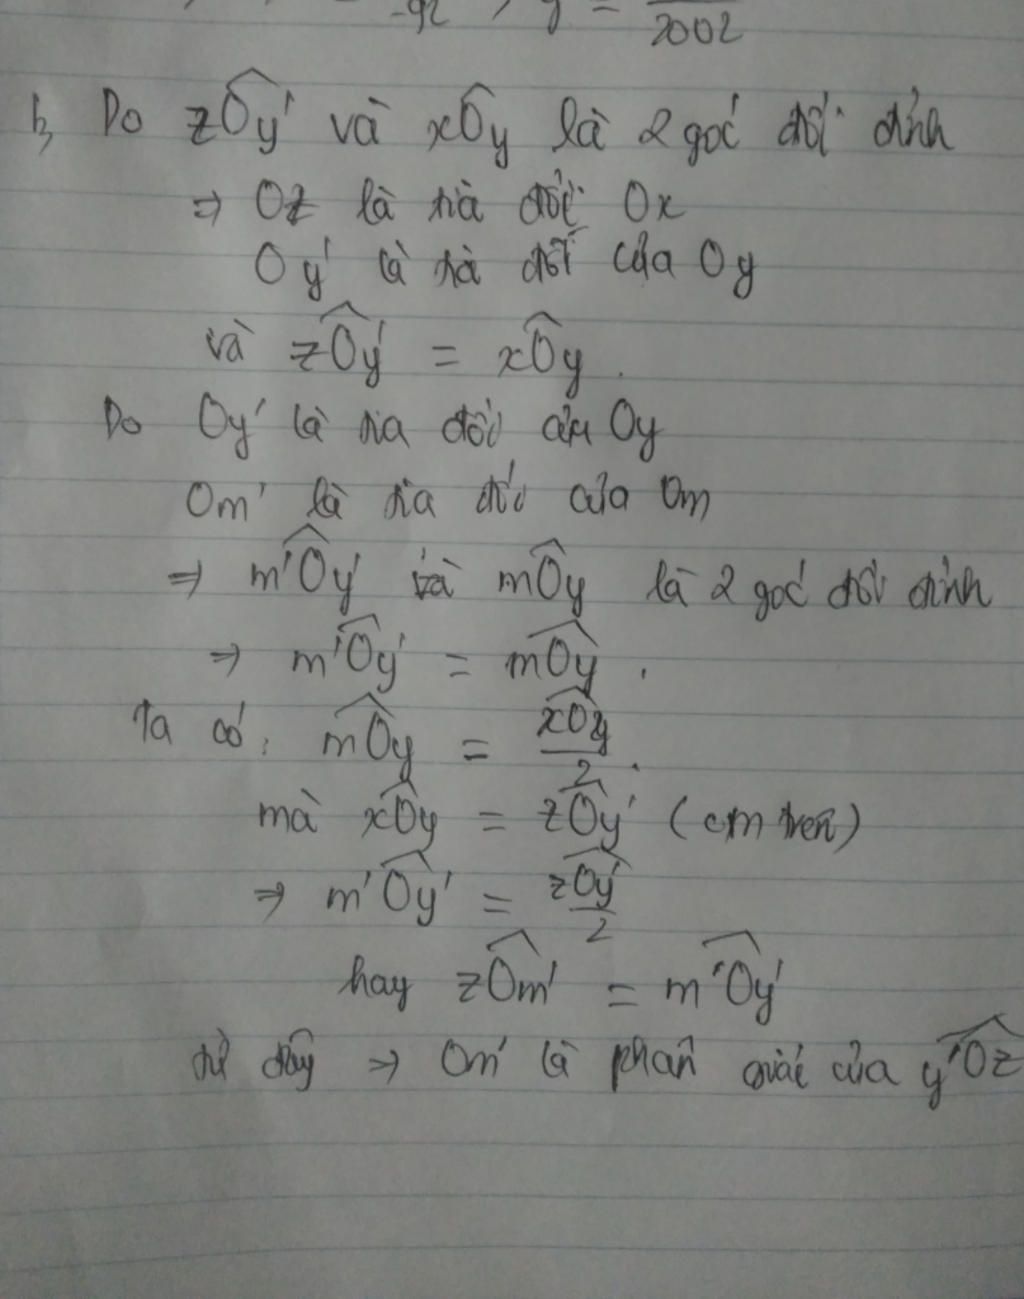 -92 , y = 2002
b, Do zOy' và xOy là 2 góc đối đỉnh
⇒ Oz là tia đối Ox
Oy' là tia đối của Oy
và zOy' = xOy.
Do Oy' là tia đối của Oy
Om' là tia đối của Om
⇒ m'Oy' và mOy là 2 góc đối đỉnh
⇒ m'Oy' = mOy.
Ta có: mOy = xOy/2.
mà xOy = zOy' (cm trên)
⇒ m'Oy' = zOy'/2
hay zOm' = m'Oy'
từ đây ⇒ Om' là phân giác của y'Oz